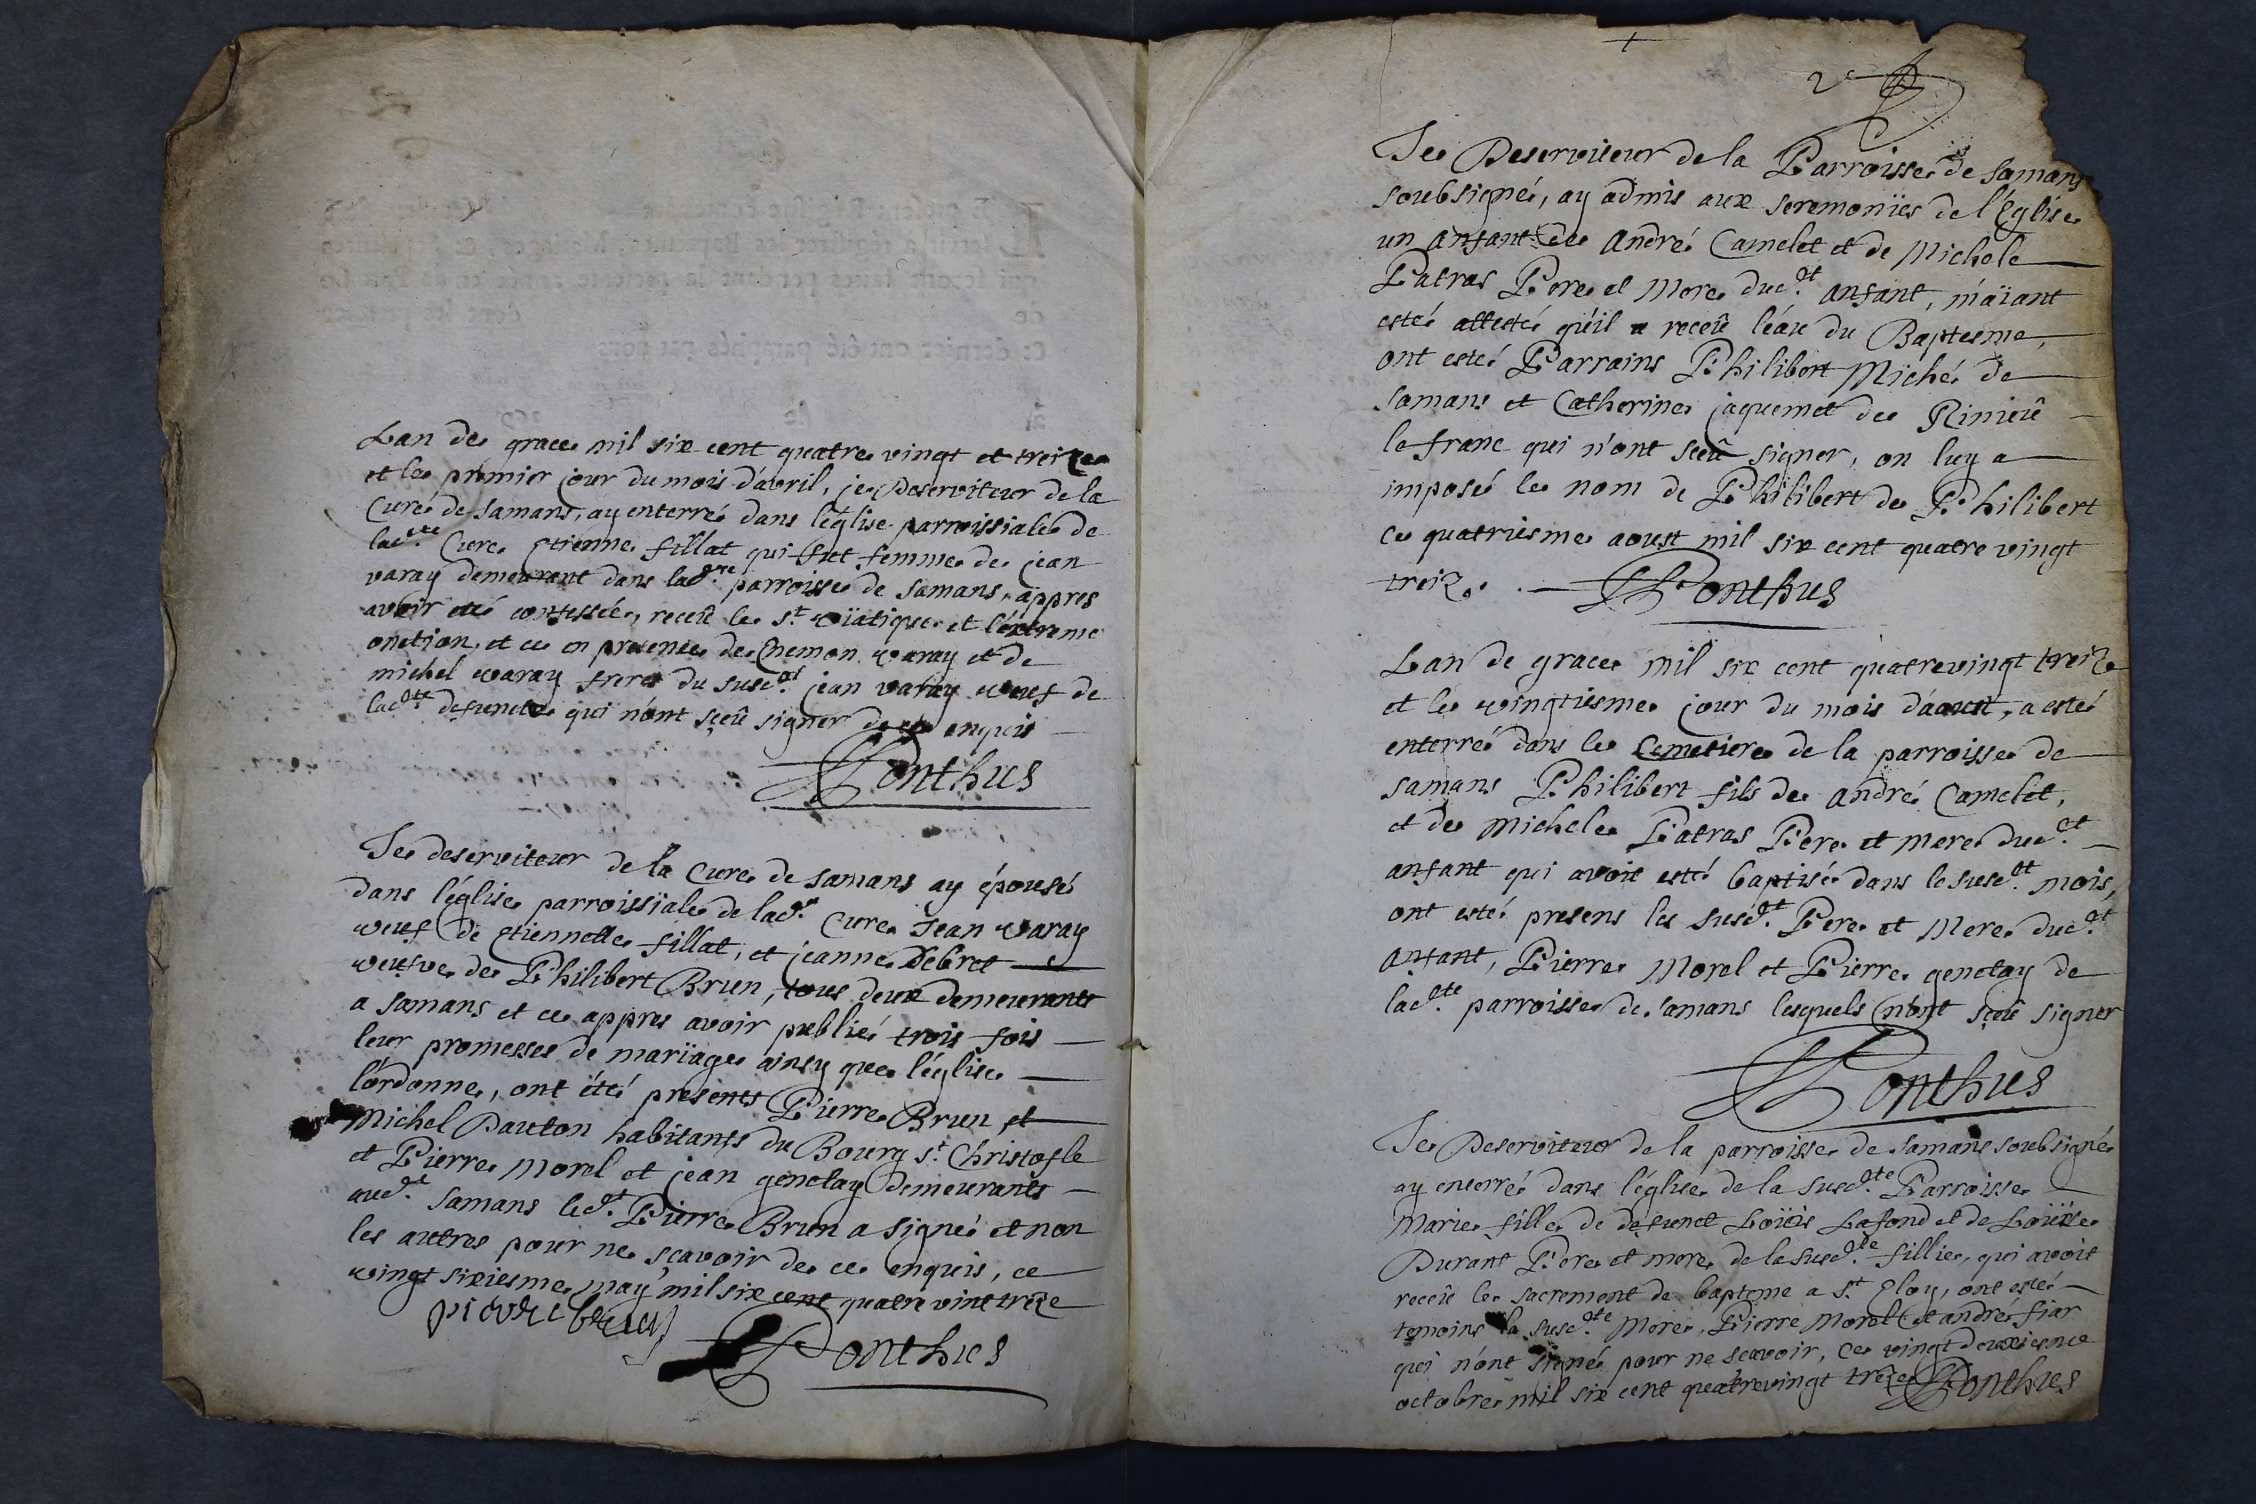 Lan de grace mil six cent quatre vingt et treize
et le premier jour du mois d'avril, je Deserviteur de la
Cure de Samans, ay enterré dans léglise parroissiale de
lad.tte Cure Etienne fillat qui fut femme de jean
varay demeurant dans lad.tte parroisse de Samans, appres
avoir été confessée, receû le s.t viatique et l'éxtreme
onction, et ce en presence de Enemon varay et de
michel varay freres du susd.t jean varay veuf de
lad.tte defuncte qui n'ont sçeû signer de ce enquis
Ponthus
Je deserviteur de la Cure de Samans ay épousé
dans léglise parroissiale de lad.te Cure Jean varay
veuf de Etiennette fillat, et jeanne Debret
veufve de Philibert Brun, tous deux demeurants
a Samans et ce appres avoir publié trois fois
leur promesses de mariage ainsy que l'église
l'ordonne, ont été presents Pierre Brun et
Michel Dauton habitants du Bourg s.t Christofle
et Pierre Morel et jean genetay demeurants
aud.t Samans led.t Pierre Brun a signé et non
les autres pour ne sçavoir de ce enquis, ce
vingt sixiesme may mil six cent quatre vint treze
pierre brun
Ponthus
2e
Je Deserviteur de la Parroisse de Samans
soubsigné, ay admis aux seremonïes de l'Eglise
un anfant de André Camelet et de Michele
Patras Pere et Mere dud.t anfant, m'aïant
esté attesté qu'il a receû léau du Baptesme,
ont esté Parrains Philibert Miché de
Samans et Catherine jaquemet de Rinieû
le franc qui n'ont sceû signer, on luy a
imposé le nom de Philibert de Philibert
ce quatriesme aoust mil six cent quatre vingt
treize. Ponthus
Lan de grace mil six cent quatrevingt treize
et le vingtiesme jour du mois d'aoust, a esté
enterré dans le Cemetiere de la parroisse de
Samans Philibert fils de André Camelet,
et de Michele Patras Pere et mere dud.t
anfant qui avoit esté baptisé dans le susd.t mois,
ont esté presens les susd.t Pere et Mere dud.t
anfant, Pierre Morel et Pierre genetay de
lad.tte parroisse de Samans lesquels n'ont sçeû signer
Ponthus
Je Deserviteur de la parroisse de Samans soubsigné
ay enterré dans l'église de la susd.tte Parroisse
Marie fille de defunct Loüis Lafond et de Loüise
Durant Pere et mere de la susd.tte fillie, qui avoit
receû le sacrement de bapteme a s.t Eloy, ont esté
temoins la susd.tte Mere, Pierre Morel et andré fiar
qui n'ont signé pour ne scavoir, ce vingt deuxiesme
octobre mil six cent quatrevingt treze Ponthus